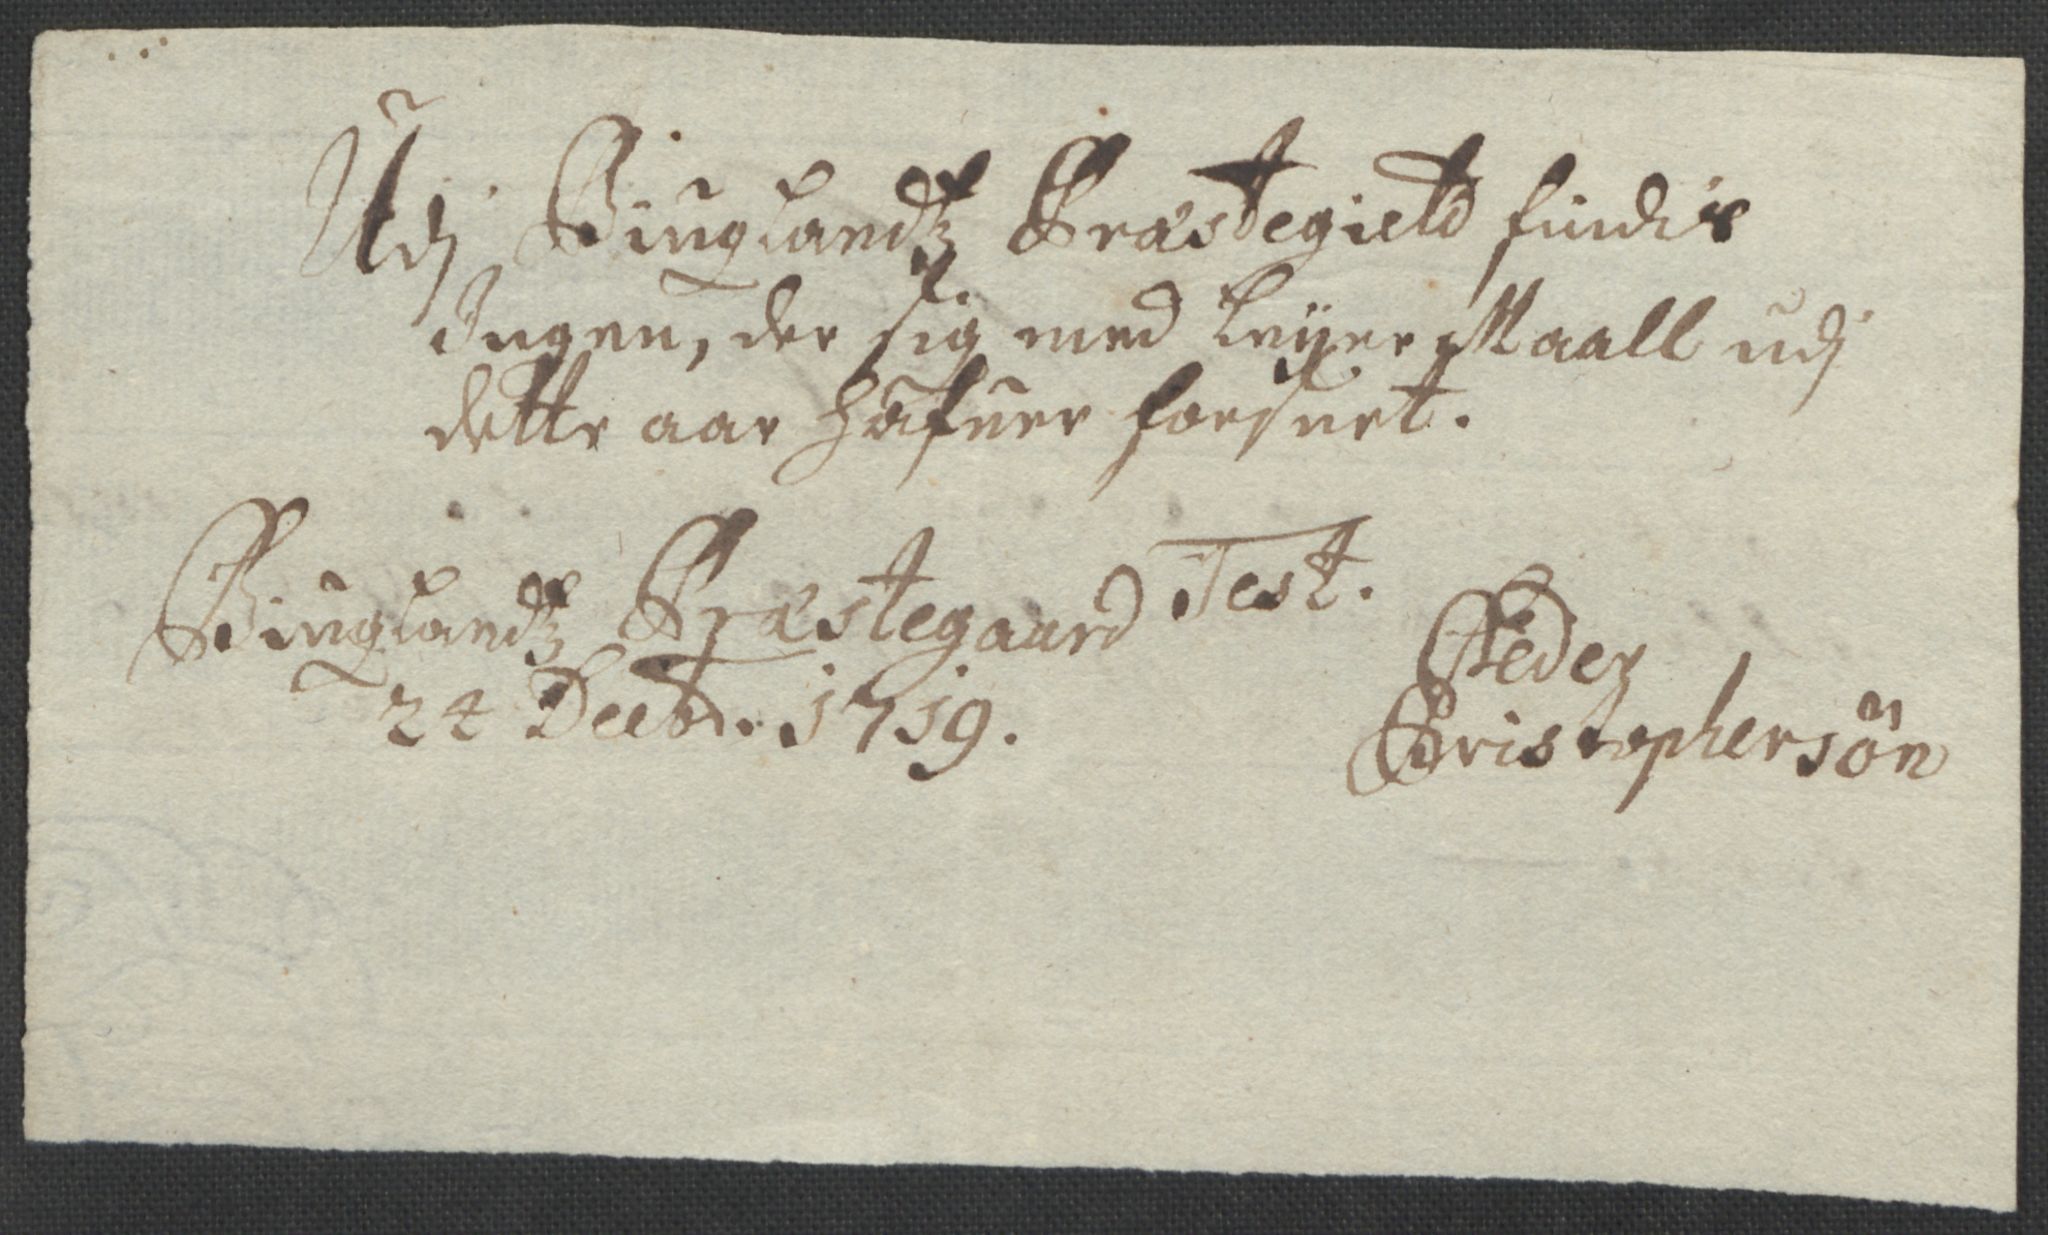 Udj Biuglandz Præstegield findis
Ingen, der sig med Leyer Maall udj
dette aar hafuer forseet.
Biuglandz Præstegaard Test.
24 Decbr. 1719.
Peder
Christophersön